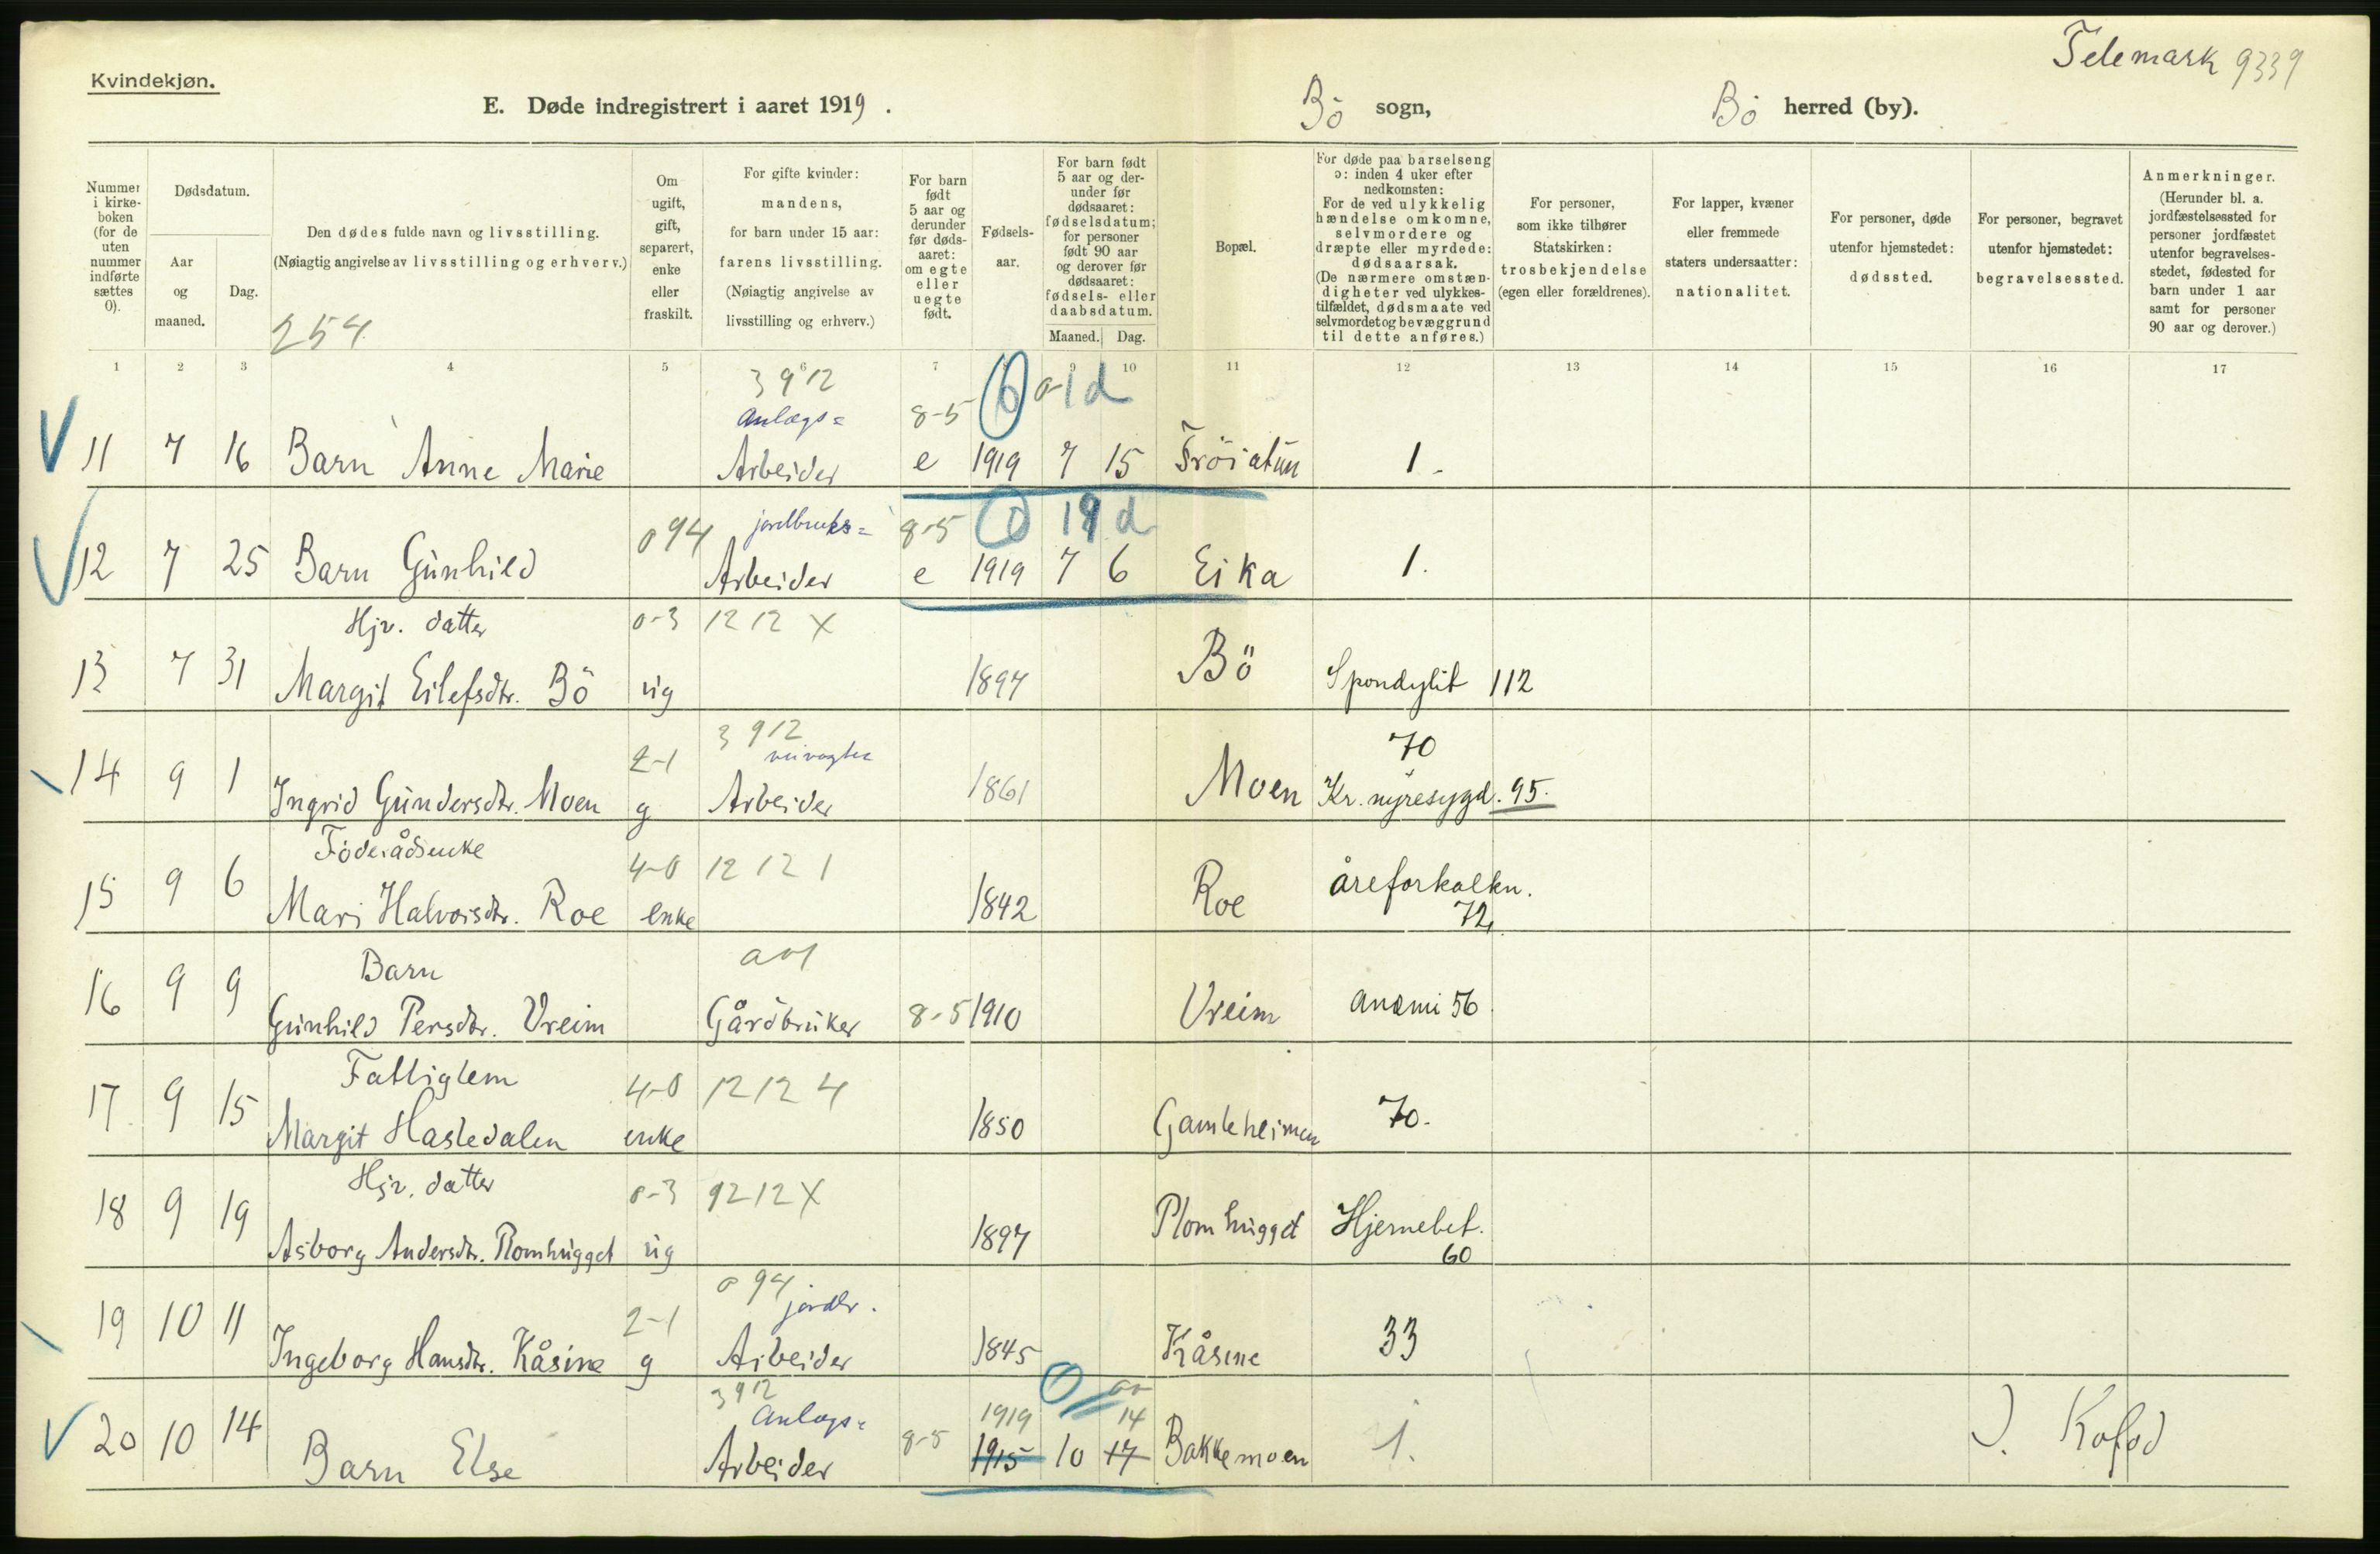 Telemark 9339
Kvindekjøn.
E. Døde indregistrert i aaret 1919. Bö sogn, Bö herred (by).
Nummer i kirkeboken (for de uten nummer indførte sættes 0).
Dødsdatum.
Aar og maaned.
Dag.
Den dødes fulde navn og livsstilling.
(Nøiagtig angivelse av livsstilling og erhverv.)
254
Om ugift, gift, separert, enke eller fraskilt.
For gifte kvinder: mandens, for barn under 15 aar: farens livsstilling. (Nøiagtig angivelse av livsstilling og erhverv.)
For barn født 5 aar og derunder før dødsaaret: om egte eller uegte født.
Fødselsaar.
For barn født 5 aar og derunder før dødsaaret: fødselsdatum; for personer født 90 aar og derover før dødsaaret: fødsels- eller daabsdatum.
Maaned. Dag.
Bopæl.
For døde paa barselseng ɔ: inden 4 uker efter nedkomsten: For de ved ulykkelig hændelse omkomne, selvmordere og dræpte eller myrdede: dødsaarsak. (De nærmere omstændigheter ved ulykkestilfældet, dødsmaate ved selvmordet og bevæggrund til dette anføres.)
For personer, som ikke tilhører Statskirken: trosbekjendelse (egen eller forældrenes).
For lapper, kvæner eller fremmede staters undersaatter: nationalitet.
For personer, døde utenfor hjemstedet: dødssted.
For personer, begravet utenfor hjemstedet: begravelsessted.
Anmerkninger. (Herunder bl. a. jordfæstelsessted for personer jordfæstet utenfor begravelsesstedet, fødested for barn under 1 aar samt for personer 90 aar og derover.)
1 2 3 4 5 6 7 9 10 11 12 13 14 15 16 17
3 912 1 d
Anlægs= 8-5
11 7 16 Barn Anne Marie Arbeider e 1919 7 15 Fröiatun 1.
094 jordbruks= 8-5 0 19 d
12 7 25 Barn Gunhild Arbeider e 1919 7 6 Eika 1.
Hjv. datter 0-3 12 12 X
13 7 31 Margit Eilefsdtr. Bö ug 1897 Bö Spondylit 112
2-1 3 912 veivogter 70
14 9 1 Ingrid Gundersdtr. Moen g Arbeider 1861 Moen Kr. nyresygd. 95.
Föderådsenke 4-0 12 12 1
15 9 6 Mari Halvorsdtr. Roe enke 1842 Roe åreforkalkn. 72
Barn
16 9 9 Gunhild Persdtr. Vreim Gårdbruker 8-5 1910 Vreim anæmi 56
Fattiglem 4-0 12 12 4
17 9 15 Margit Hasledalen enke 1850 Gamleheimen 70.
Hjv. datter 0-3 92 12 X
18 9 19 Asborg Andersdtr. Plomhugget ug 1897 Plomhugget Hjernebet. 60
2-1 094 jordbr.
19 10 11 Ingeborg Hansdtr. Kåsine g Arbeider 1845 Kåsine 33
3 912 Anlægs= 1919 0 14
20 10 14 Barn Else Arbeider 8-5 1915 10 17 Bakkemoen 1. J. Kofod